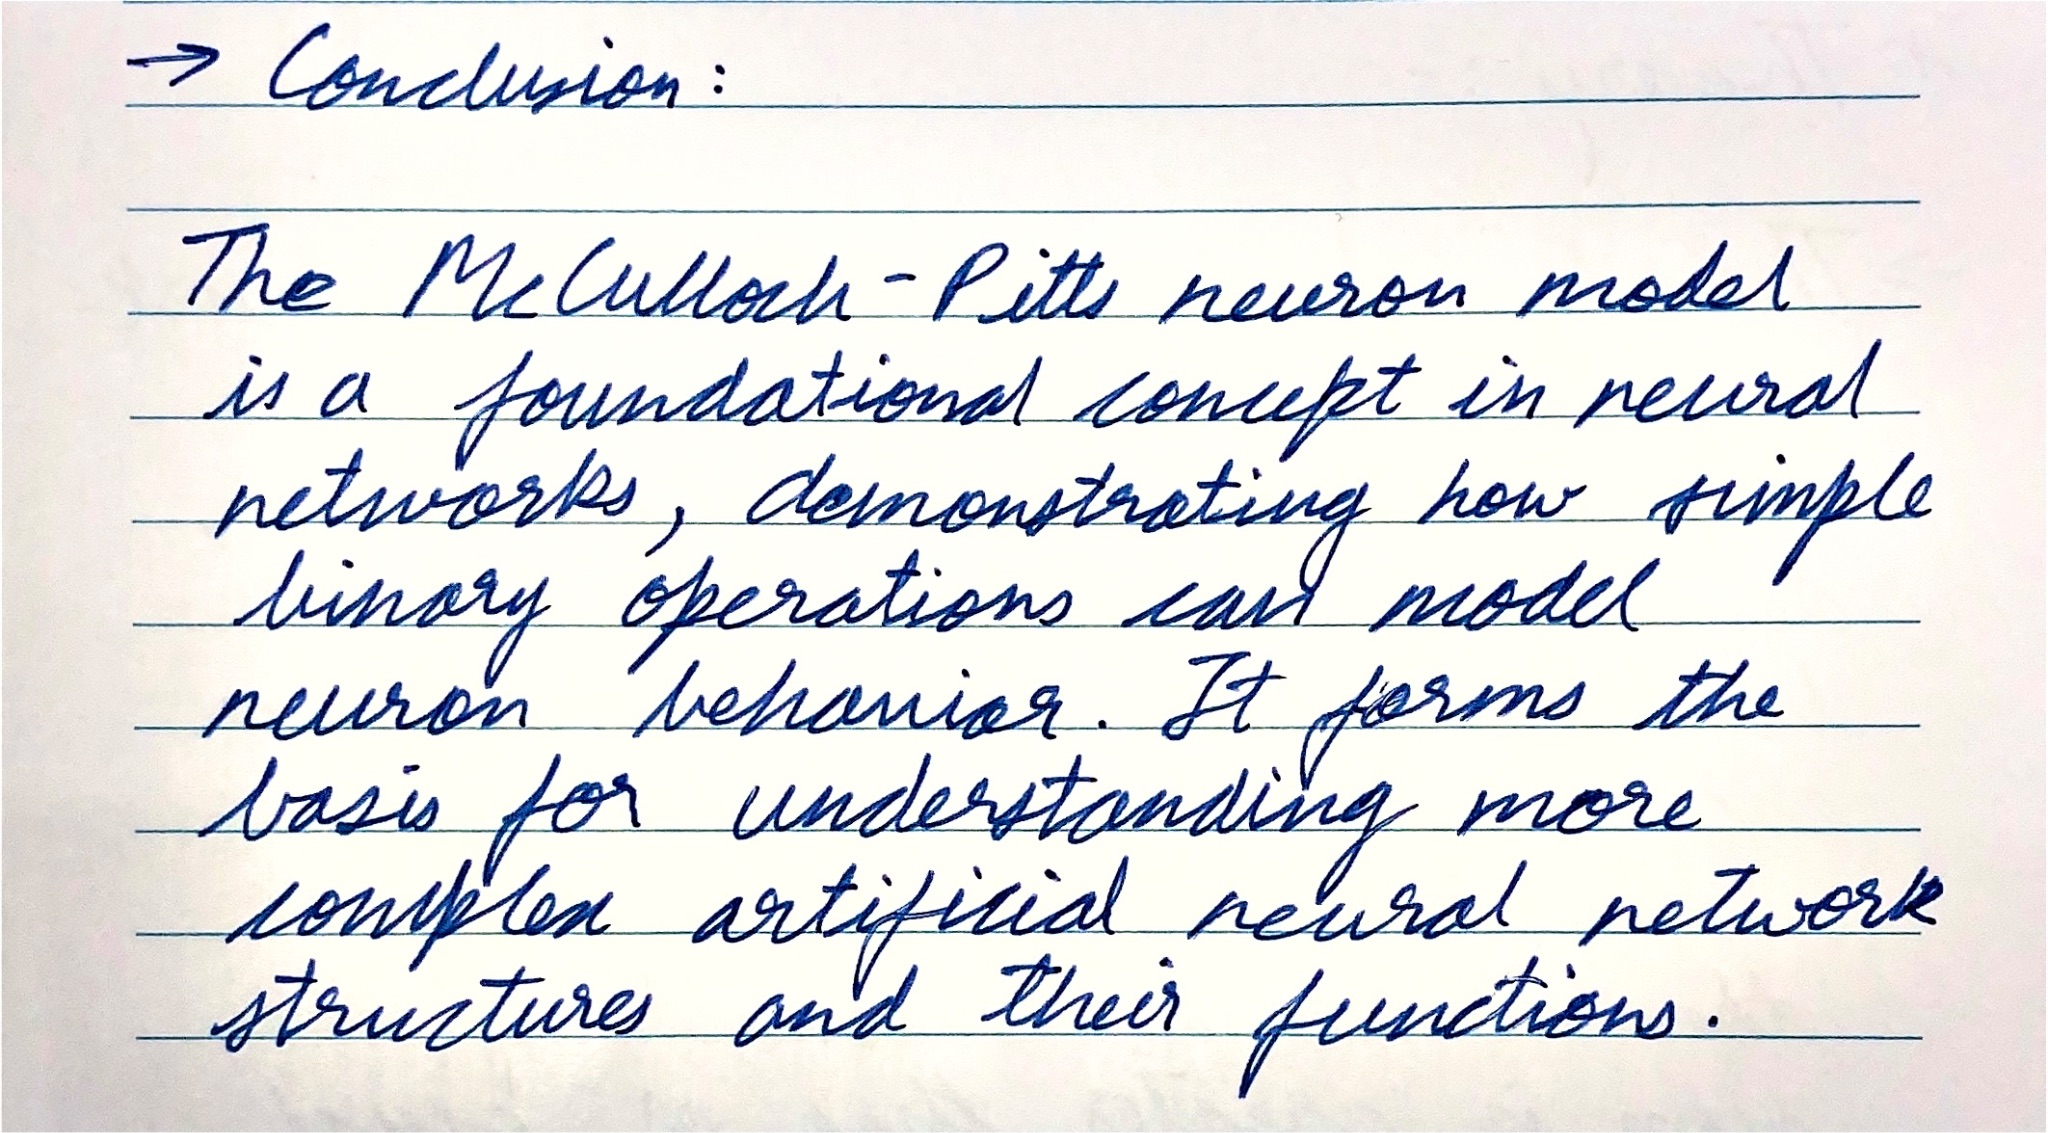 → Conclusion:
The McCulloch-Pitts neuron model
is a foundational concept in neural
networks, demonstrating how simple
binary operations can model
neuron behavior. It forms the
basis for understanding more
complex artificial neural network
structures and their functions.